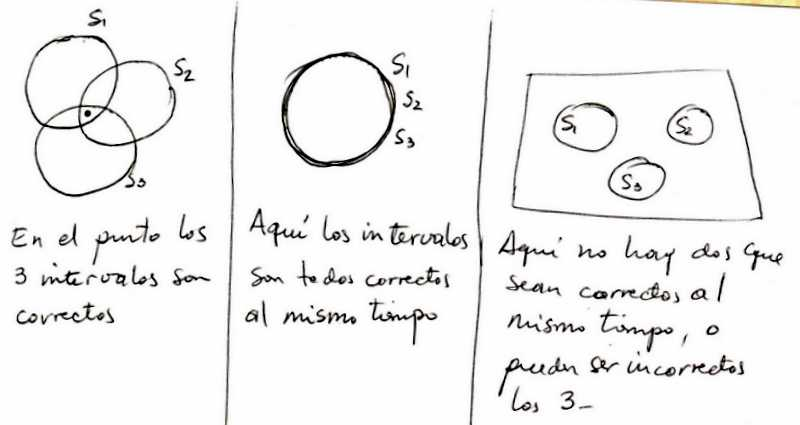 S1
S2
S3
En el punto los
3 intervalos son
correctos
S1
S2
S3
Aquí los intervalos
son todos correctos
al mismo tiempo
S1
S2
S3
Aquí no hay dos que
sean correctos al
mismo tiempo, o
pueden ser incorrectos
los 3-